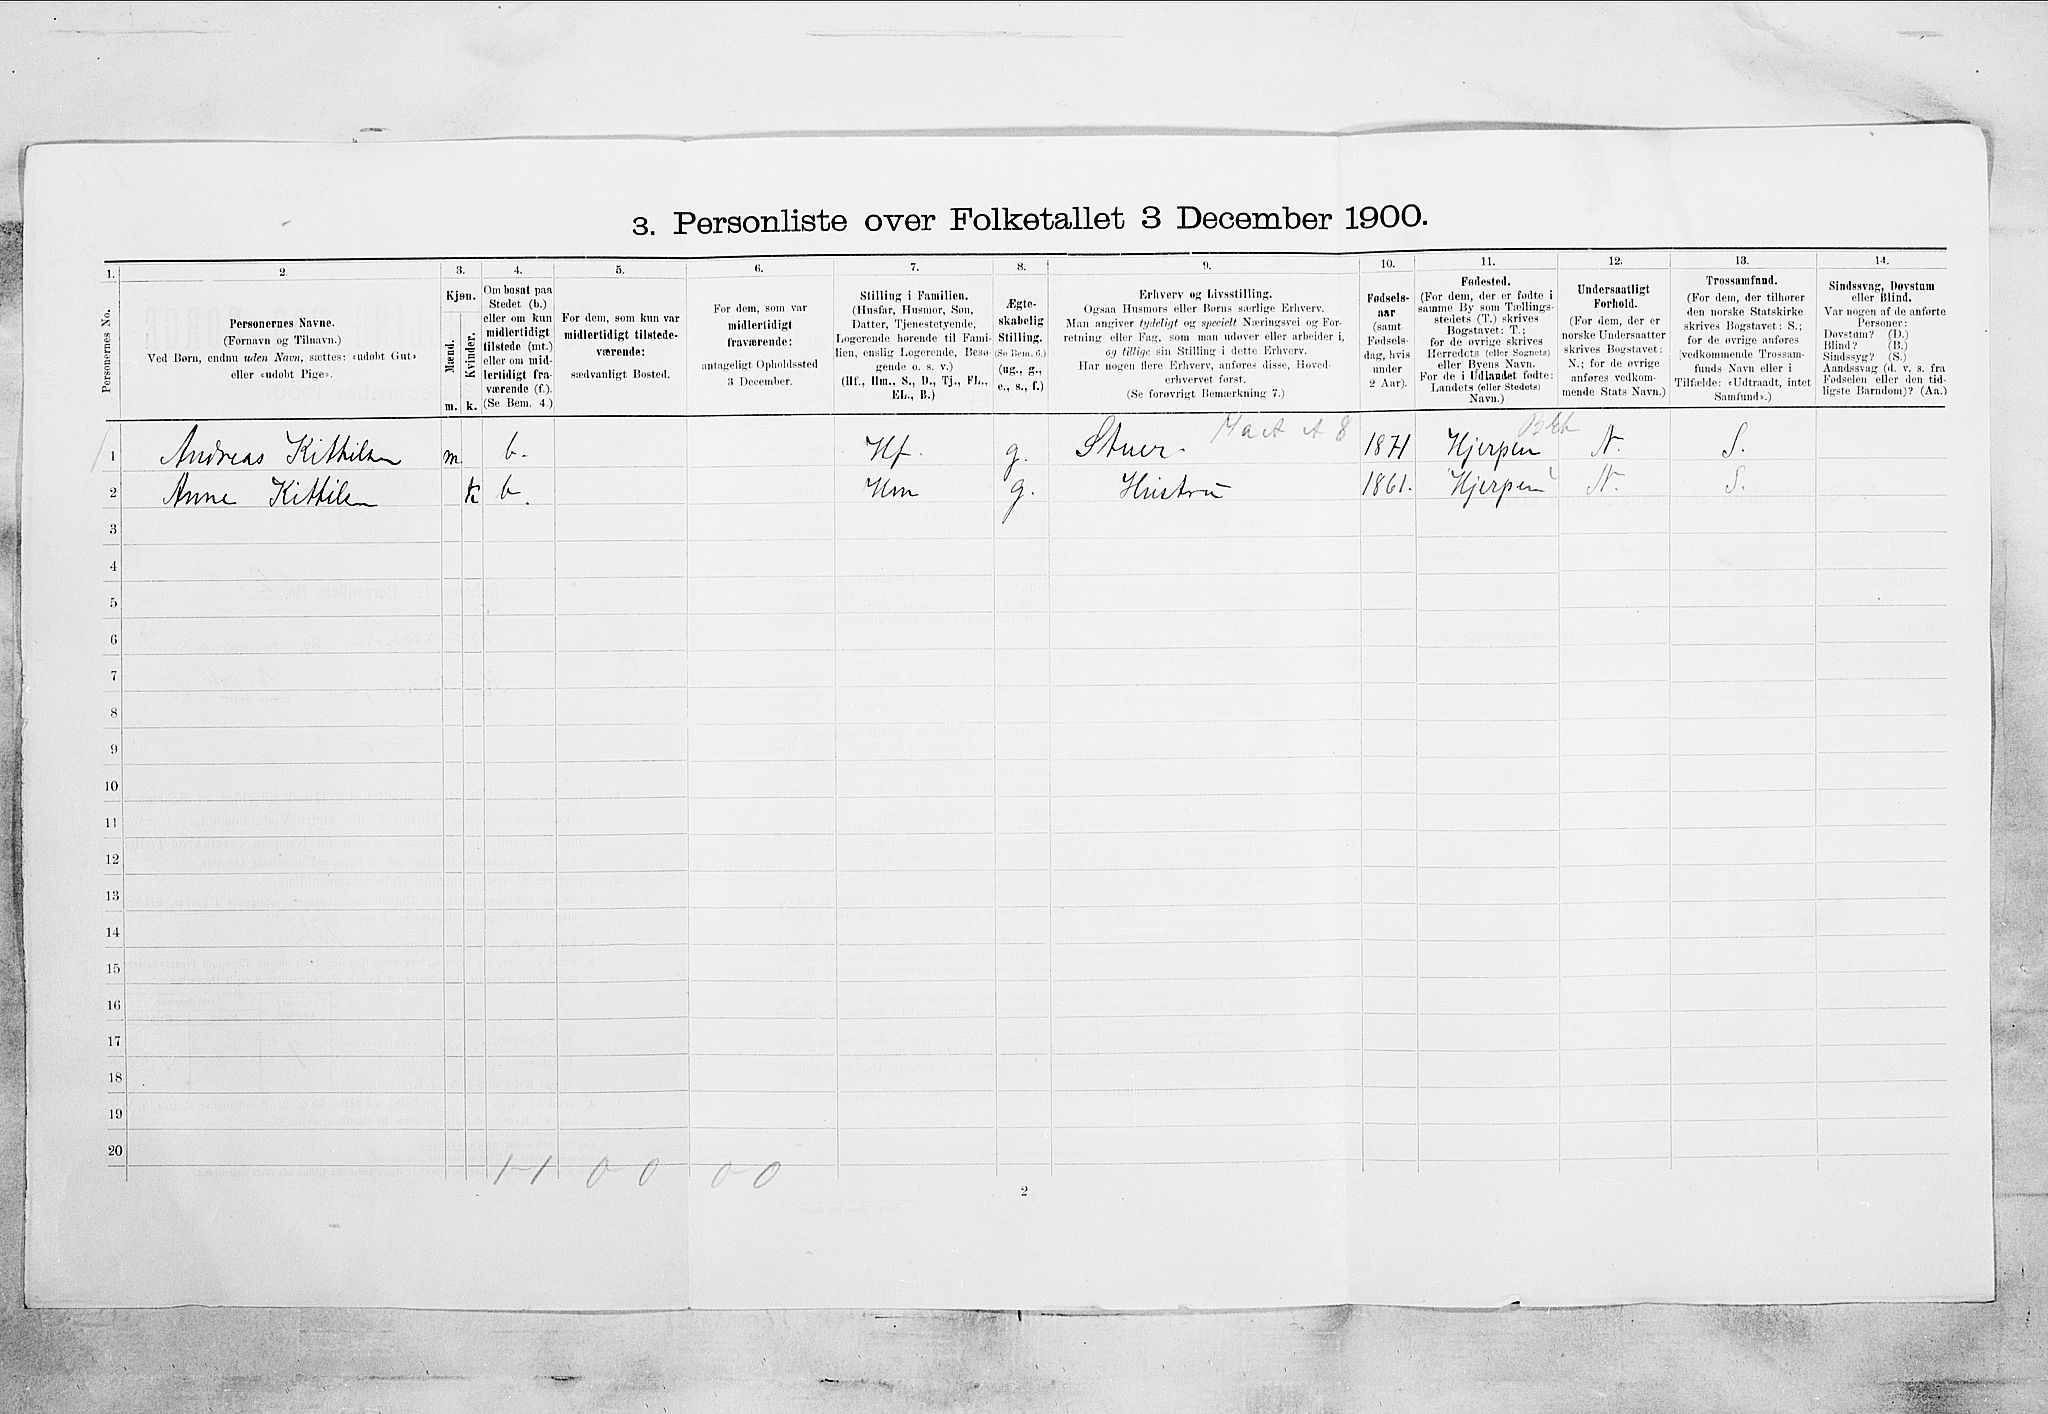 3. Personliste over Folketallet 3 December 1900.
1. 2. 3. 4. 5. 6. 7. 8. 9. 10. 11. 12. 13. 14.
Personernes No.
Personernes Navne.
(Fornavn og Tilnavn.)
Ved Børn, endnu uden Navn, sættes: «udøbt Gut»
eller «udøbt Pige».
Kjøn.
Mænd.
Kvinder.
m. k.
Om bosat paa
Stedet (b.)
eller om kun
midlertidigt
tilstede (mt.)
eller om mid-
lertidigt fra-
værende (f.).
(Se Bem. 4.)
For dem, som kun var
midlertidigt tilstede-
værende:
sædvanligt Bosted.
For dem, som var
midlertidigt
fraværende:
antageligt Opholdssted
3 December.
Stilling i Familien.
(Husfar, Husmor, Søn,
Datter, Tjenestetyende,
Logerende hørende til Fami-
lien, enslig Logerende, Besø-
gende o. s. v.)
(Hf., Hm., S., D., Tj., FL.,
EL., B.)
Ægte-
skabelig
Stilling.
(Se Bem. 6.)
(ug., g.,
e., s., f.)
Erhverv og Livsstilling.
Ogsaa Husmors eller Børns særlige Erhverv.
Man angiver tydeligt og specielt Næringsvei og For-
retning eller Fag, som man udøver eller arbeider i,
og tillige sin Stilling i dette Erhverv.
Har nogen flere Erhverv, anføres disse, Hoved-
erhvervet først.
(Se forøvrigt Bemærkning 7.)
Fødsels-
aar
(samt
Fødsels-
dag, hvis
under
2 Aar).
Fødested.
(For dem, der er fødte i
samme By som Tællings-
stedets (T.) skrives
Bogstavet: T.;
for de øvrige skrives
Herredets (eller Sognets)
eller Byens Navn.
For de i Udlandet fødte:
Landets (eller Stedets)
Navn.)
Undersaatligt
Forhold.
(For dem, der er
norske Undersaatter
skrives Bogstavet:
N.; for de øvrige
anføres vedkom-
mende Stats Navn.)
Trossamfund.
(For dem, der tilhører
den norske Statskirke
skrives Bogstavet: S.;
for de øvrige anføres
vedkommende Trossam-
funds Navn eller i
Tilfælde: «Udtraadt, intet
Samfund».)
Sindssvag, Døvstum
eller Blind.
Var nogen af de anførte
Personer:
Døvstum? (D.)
Blind? (B.)
Sindssyg? (S.)
Aandssvag (d. v. s. fra
Fødselen eller den tid-
ligste Barndom)? (Aa.)
1 Andreas Kittilsen m. b. Hf. g. Stuer. 1871 Hjerpen N. S.
2 Anne Kittilsen k b. Hm g. Hustru 1861. Hjerpen N. S.
3
4
5
6
7
8
9
10
11
12
13
14
15
16
17
18
19
20
1-1 0 0 0 0
2